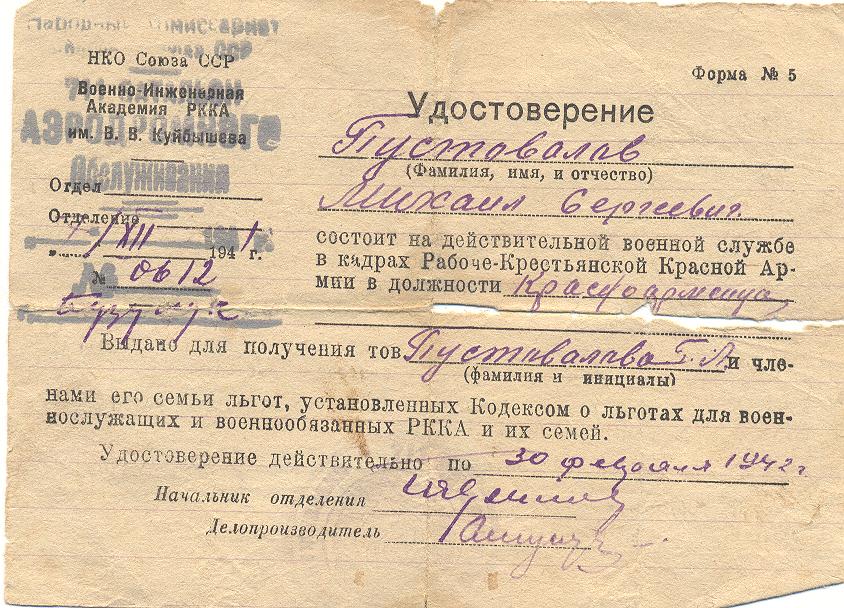 НКО Союза ССР
Военно-Инженерная
Академия РККА
им. В. В. Куйбышева
АЭРОДРОМНОГО
Обслуживания
Отдел
Отделение
7/XII 1941 г.
№ 0612
Бузулук
Форма № 5
Удостоверение
Пустовалов
(Фамилия, имя, и отчество)
Михаил Сергеевич.
состоит на действительной военной службе
в кадрах Рабоче-Крестьянской Красной Ар-
мии в должности Красноармейца
Выдано для получения тов. Пустовалова Г. Л. и чле-
(фамилия и инициалы)
нами его семьи льгот, установленных Кодексом о льготах для воен-
нослужащих и военнообязанных РККА и их семей.
Удостоверение действительно по 30 февраля 1942 г.
Начальник отделения
Делопроизводитель